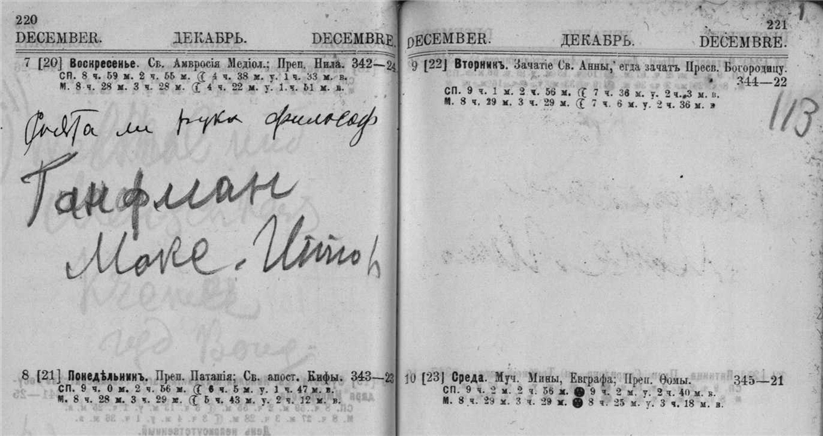 220
DECEMBER. ДЕКАБРЬ. DECEMBRE.
7 [20] Воскресенье. Св. Амвросія Медіол.; Преп. Нила. 342—24
СП. 8 ч. 59 м. 2 ч. 55 м. ☾ 4 ч. 38 м. у. 1 ч. 33 м. в.
М. 8 ч. 28 м. 3 ч. 28 м. ☾ 4 ч. 22 м. у. 1 ч. 51 м. в.
ли рука философ
Ганфман
Макс.
8 [21] Понедѣльникъ. Преп. Патапія; Св. апост. Кифы. 343—23
СП. 9 ч. 0 м. 2 ч. 56 м. ☾ 6 ч. 5 м. у. 1 ч. 47 м. в.
М. 8 ч. 28 м. 3 ч. 29 м. ☾ 5 ч. 43 м. у. 2 ч. 12 м. в.
221
DECEMBER. ДЕКАБРЬ. DECEMBRE.
9 [22] Вторникъ. Зачатіе Св. Анны, егда зачатъ Пресв. Богородицу.
344—22
СП. 9 ч. 1 м. 2 ч. 56 м. ☾ 7 ч. 36 м. у. 2 ч. 3 м. в.
М. 8 ч. 29 м. 3 ч. 29 м. ☾ 7 ч. 6 м. у. 2 ч. 36 м. в
113
10 [23] Среда. Муч. Мины, Евграфа; Преп. Ѳомы. 345—21
СП. 9 ч. 2 м. 2 ч. 56 м. ● 9 ч. 2 м. у. 2 ч. 40 м. в.
М. 8 ч. 29 м. 3 ч. 29 м. ● 8 ч. 25 м. у. 3 ч. 18 м. в.